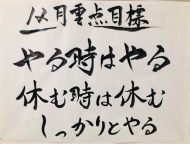 12月重点目標
やる時はやる
休む時は休む
しっかりとやる